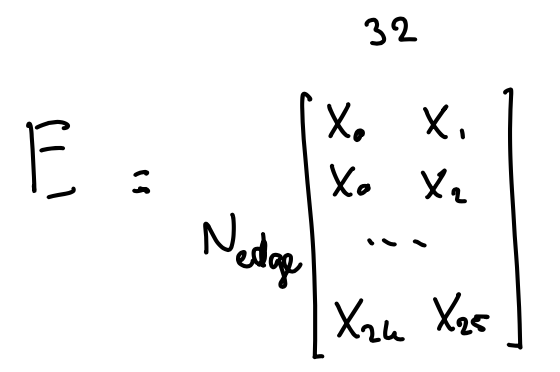 32
E =
N_edge
X_0 X_1
X_0 X_2
...
X_24 X_25